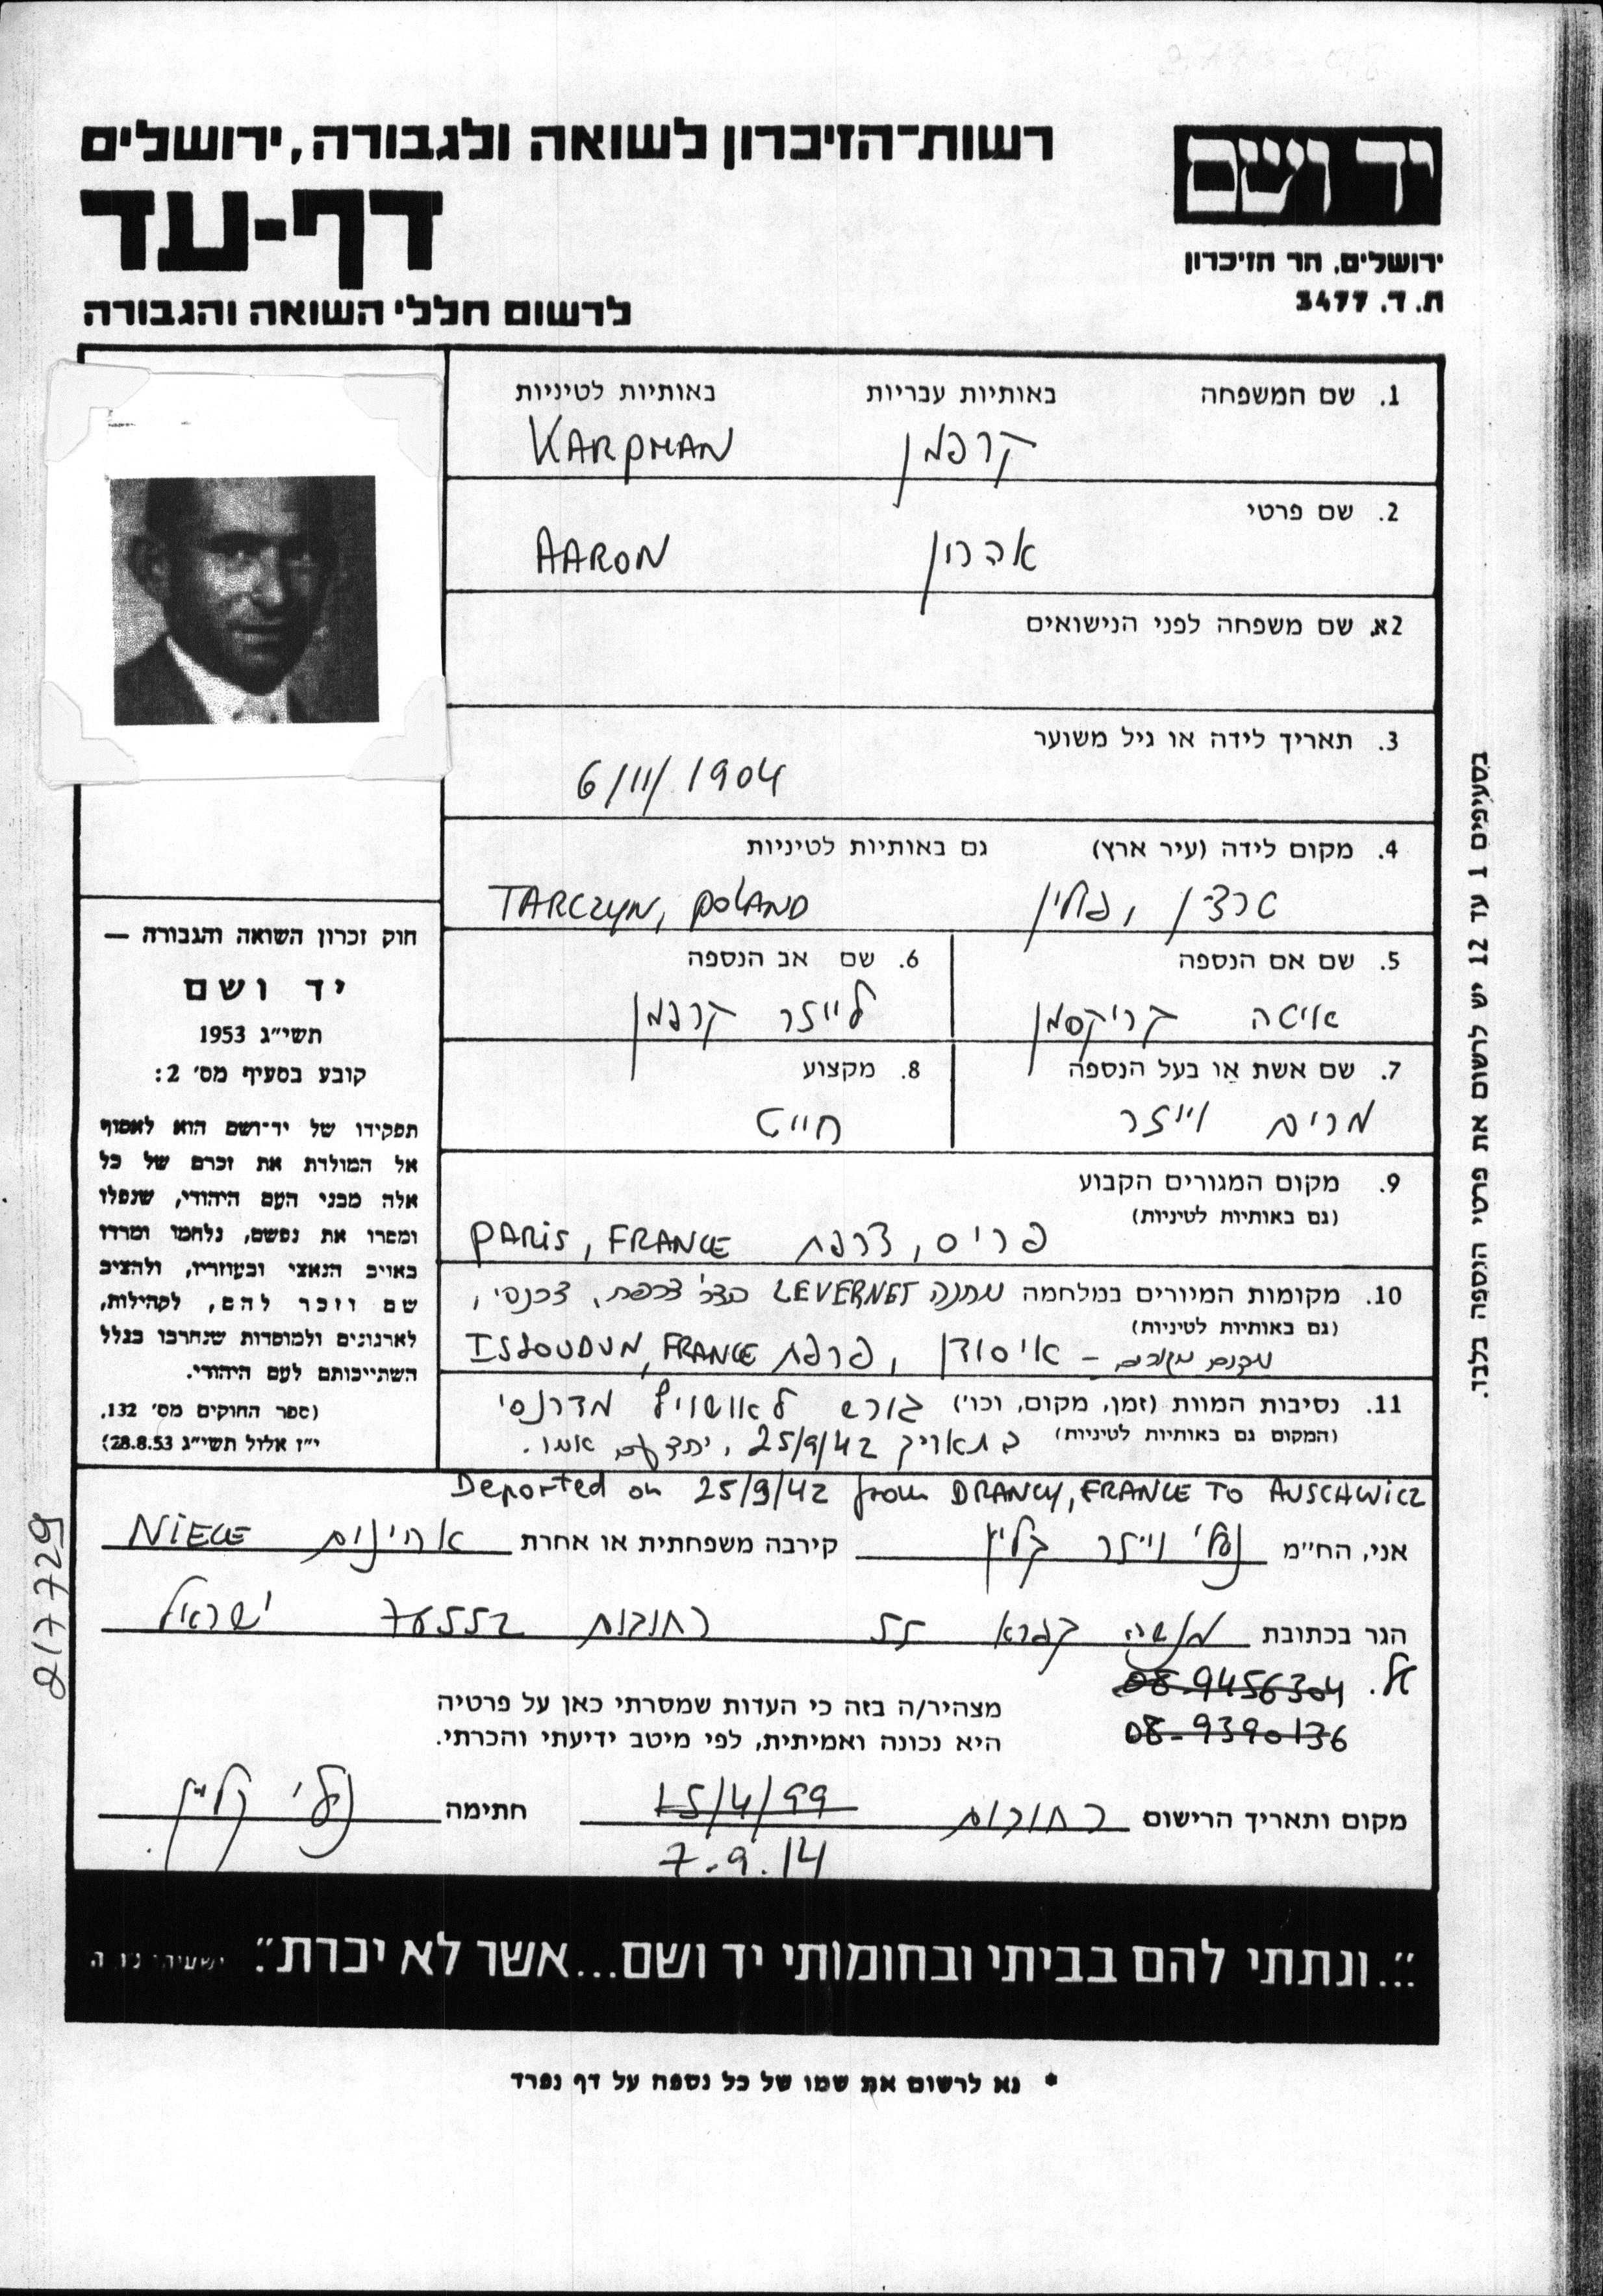 רשות־הזיכרון לשואה ולגבורה, ירושלים
דף-עד
לרשום חללי השואה והגבורה
יד ושם
ירושלים, הר הזיכרון
ת. ד. 3477
1. שם המשפחה באותיות עבריות באותיות לטיניות
קרפמן KARPMAN
2. שם פרטי
אהרון AARON
2א. שם משפחה לפני הנישואים
3. תאריך לידה או גיל משוער
6/11/1904
4. מקום לידה (עיר ארץ) גם באותיות לטיניות
טרצ'ן, פולין TARCZYN, POLAND
5. שם אם הנספה
אויטה קריקסמן
6. שם אב הנספה
לייזר קרפמן
7. שם אשת או בעל הנספה
מרים וייזר
8. מקצוע
חייט
9. מקום המגורים הקבוע
(גם באותיות לטיניות)
פריס, צרפת PARIS, FRANCE
10. מקומות המיורים במלחמה מחנה LEVERNET בדר' צרפת,
(גם באותיות לטיניות)
מקום מגורים – איסודן, צרפת ISSOUDUN, FRANCE
11. נסיבות המוות (זמן, מקום, וכו') גורש לאושויץ מדרנסי
(המקום גם באותיות לטיניות) בתאריך 25/9/42, יחד עם אמו.
Deported on 25/9/42 from DRANCY, FRANCE TO AUSCHWICZ
חוק זכרון השואה והגבורה —
יד ושם
תשי״ג 1953
קובע בסעיף מס׳ 2:
תפקידו של יד־ושם הוא לאסוף
אל המולדת את זכרם של כל
אלה מבני העם היהודי, שנפלו
ומסרו את נפשם, נלחמו ומרדו
באויב הנאצי ובעוזריו, ולהציב
שם וזכר להם, לקהילות,
לארגונים ולמוסדות שנחרבו בגלל
השתייכותם לעם היהודי.
(ספר החוקים מס׳ 132,
י״ז אלול תשי״ג 28.8.53)
אני, הח״מ נפלי וייזר קליין קירבה משפחתית או אחרת אחינית NIECE
הגר בכתובת מנשה קפרא 55 רחובות 76552 ישראל
טל. 08-9456304
08-9390136
מצהיר/ה בזה כי העדות שמסרתי כאן על פרטיה
היא נכונה ואמיתית, לפי מיטב ידיעתי והכרתי.
מקום ותאריך הרישום רחובות 15/4/99 חתימה נפלי קליין
7.9.14
״...ונתתי להם בביתי ובחומותי יד ושם...אשר לא יכרת״. ישעיהו נו, ה
* נא לרשום את שמו של כל נספה על דף נפרד
בסעיפים 1 עד 12 יש לרשום את פרטי הניספה בלבד.
217729